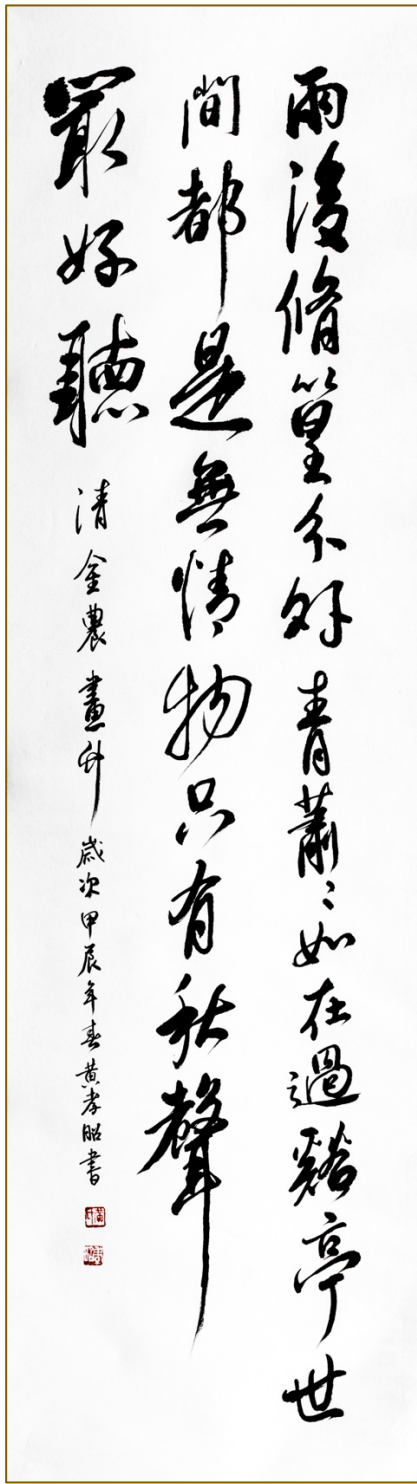 雨後脩篁分外青蕭〻如在過谿亭世
間都是無情物只有秋聲
最好聽
清金農畫竹歲次甲辰年春黃孝昭書